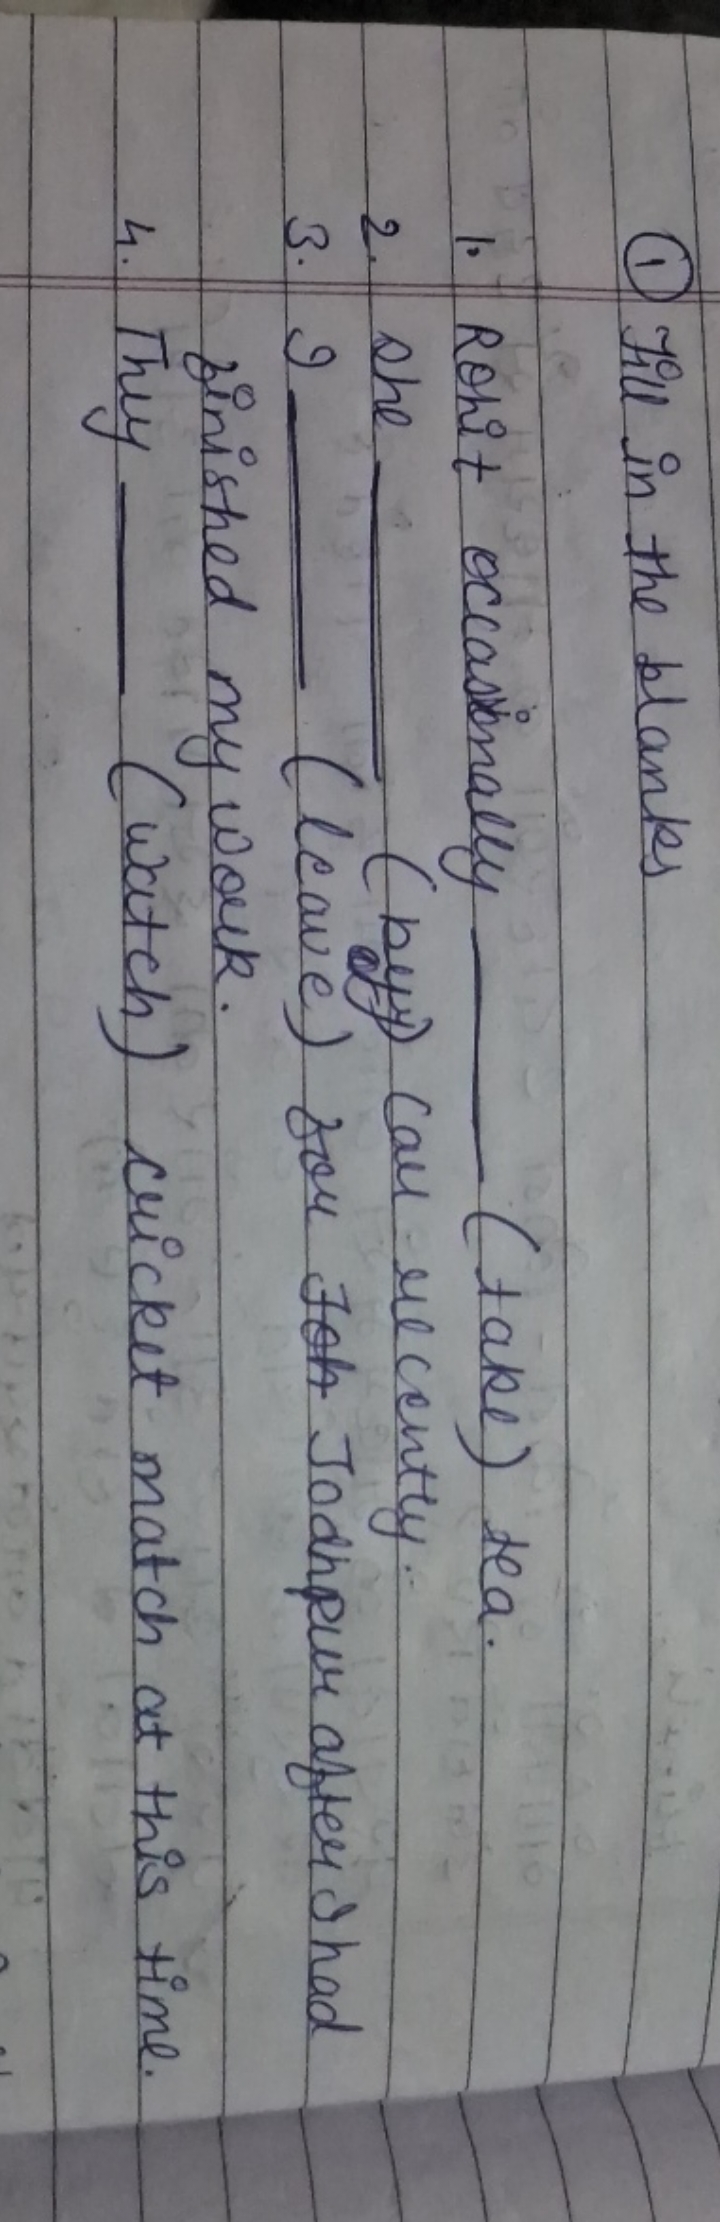 ① Fill in the blanks
1. Rohit occasionally ______ (take) tea.
2. She ______ (buy) car recently.
3. I ______ (leave) for Jodhpur after I had
finished my work.
4. They ______ (watch) cricket match at this time.